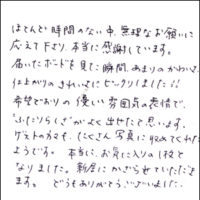 ほとんど時間のない中、無理なお願いに
応えて下さり、本当に感謝しています。
届いたボードを見た瞬間、あまりのかわいさ、
仕上がりのきれいさにビックリしました!!
希望どおりの優しい雰囲気の表情で、
"ふたりらしさ"がよく出せたと思います。
ゲストの方々も、たくさん写真に収めてくれた
ようです。本当に、お気に入りの1枚と
なりました。新居にかざらせていただき
ます。どうもありがとうございました。